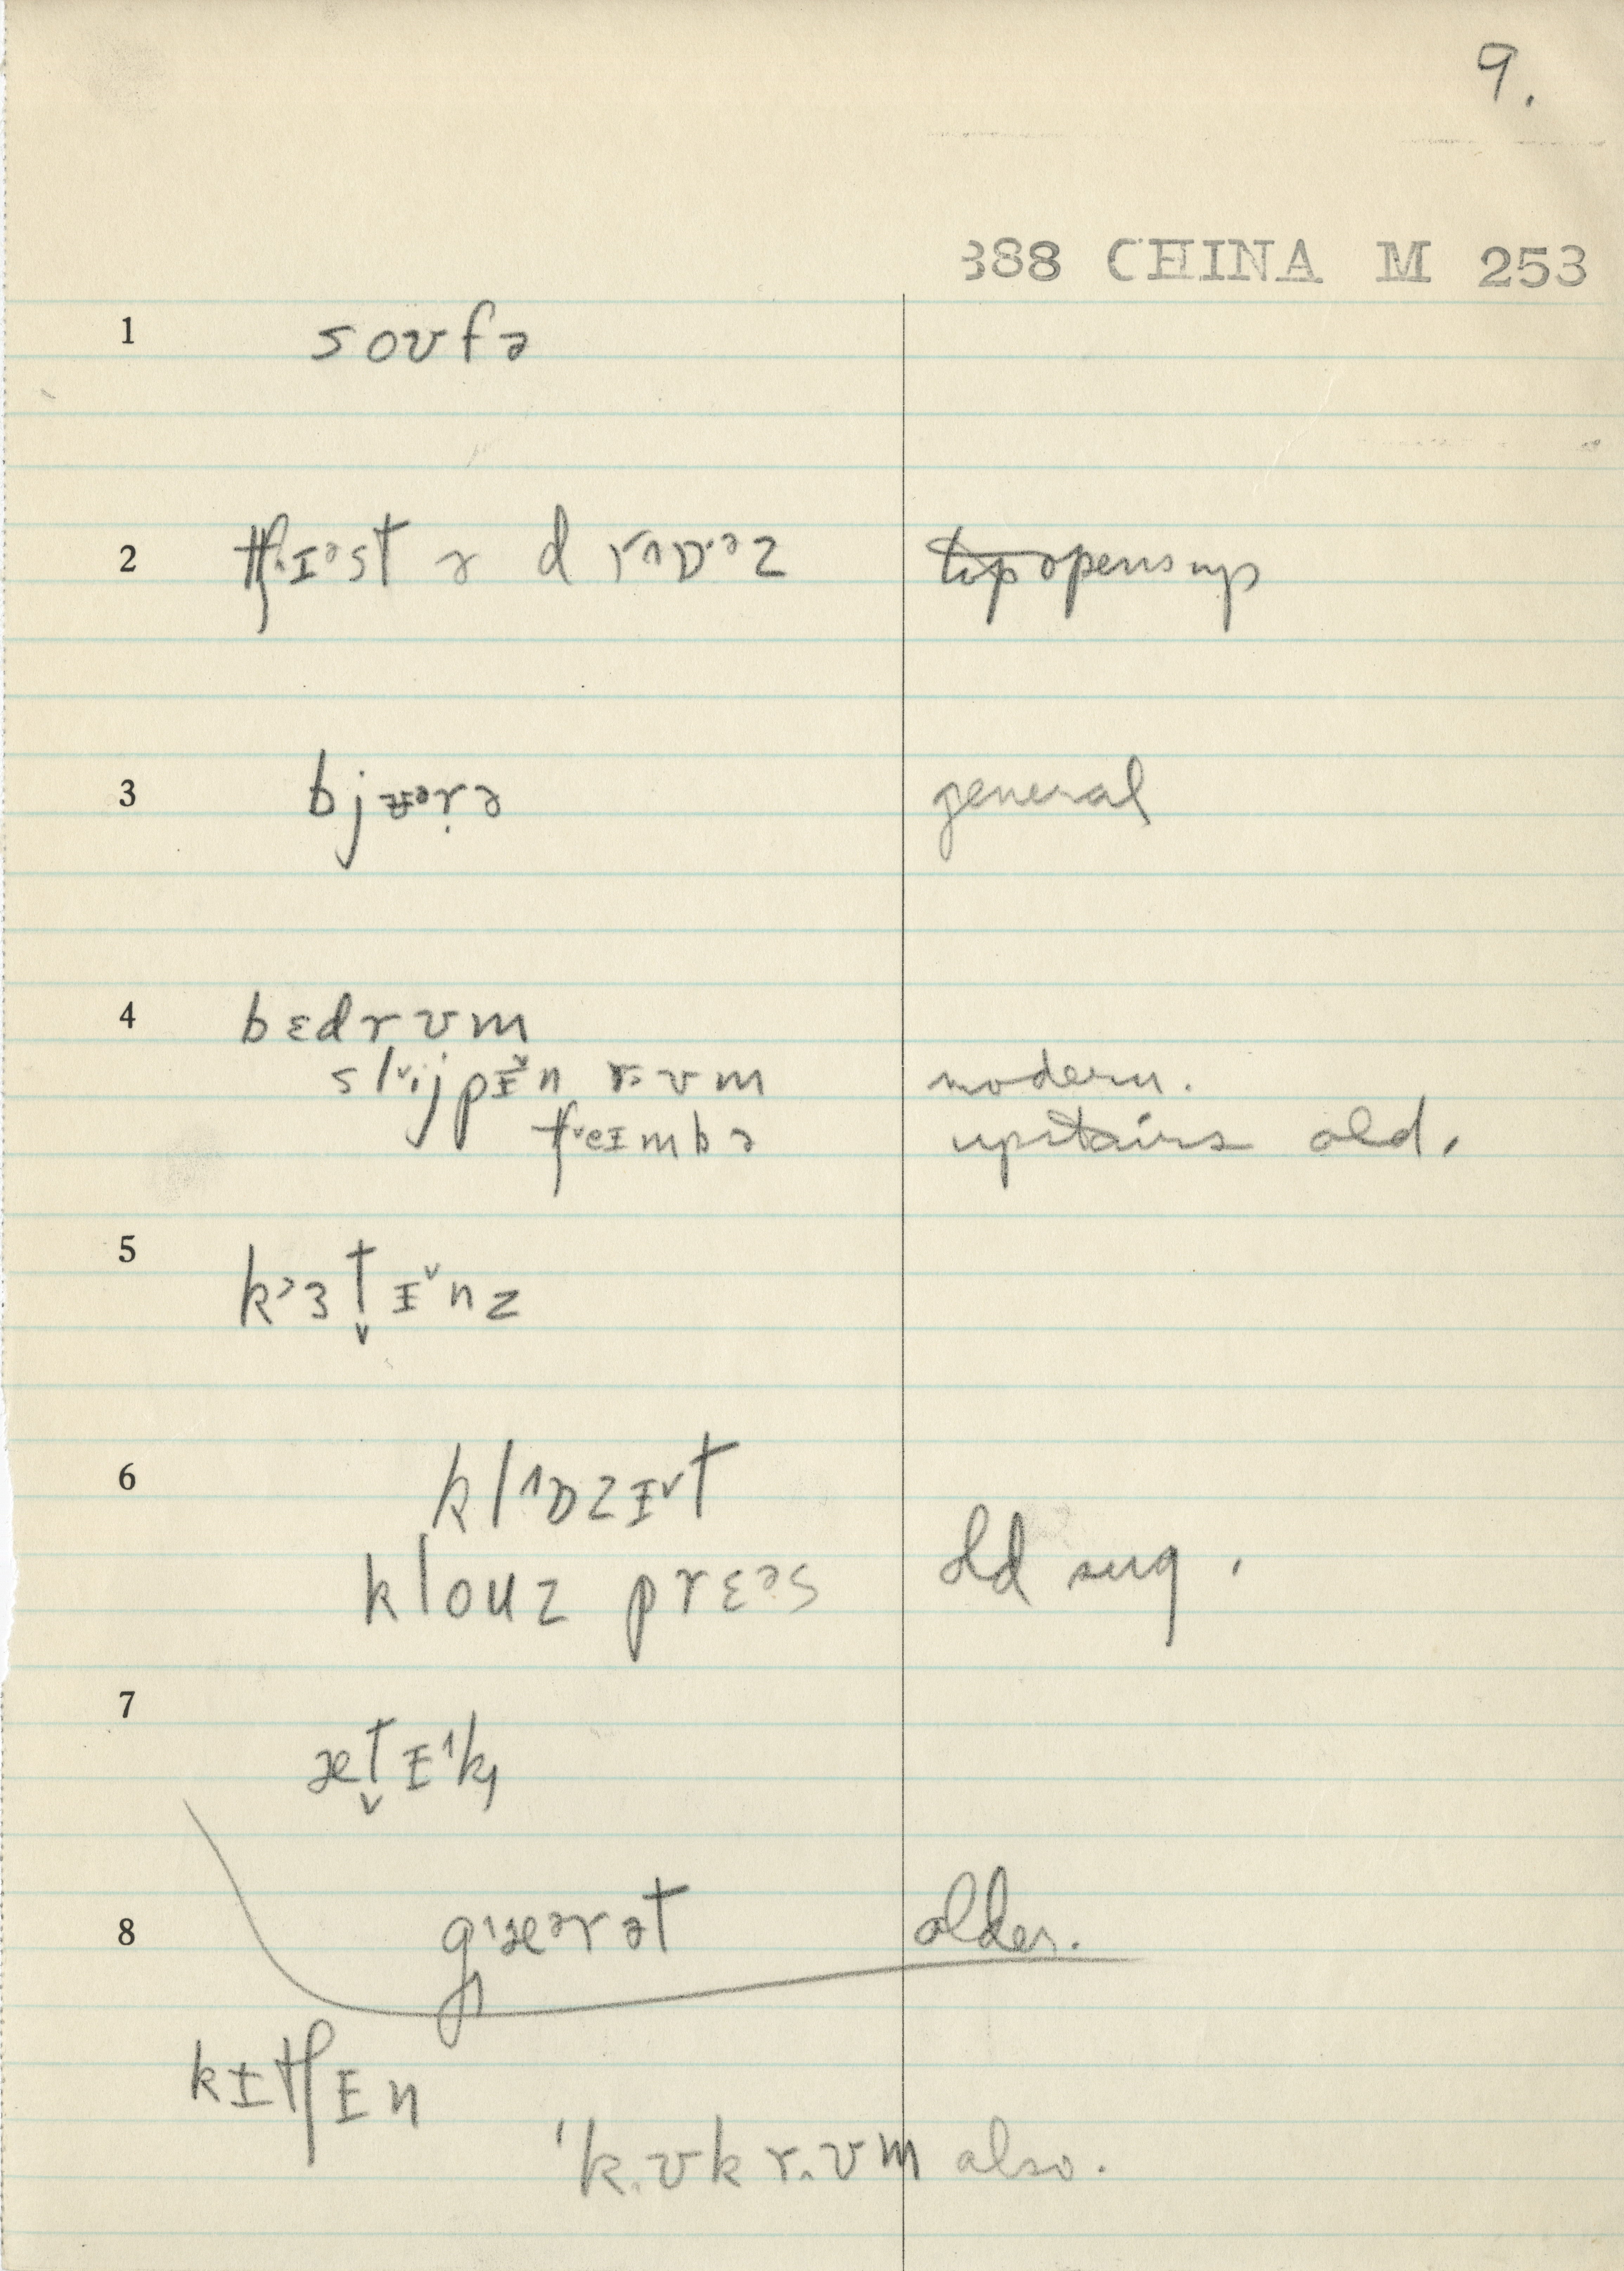 9.
388 CHINA M 253
1 soʊfə
2 tʃɪᵊst ə drɒᵊz opens up
3 bjʉᵊrə general
4 bɛdrʊm
slijpɪ̌n rʊm modern.
tʃeɪmbə upstairs old.
5 kᵊɜt̬ɪ̌nz
6 klɒzɪt
klouz prɛᵊs old sug.
7 æt̬ɪk
8 gæᵊrət older.
kɪtʃɪn
ˈkʊk rʊm also.